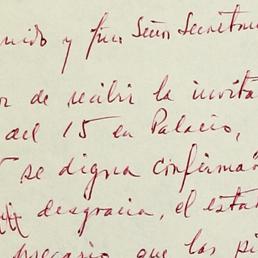 y fino Señor Secretario
de recibir la invita
del 15 en Palacio,
se digna confirma
desgracia, el esta
precario que las pi